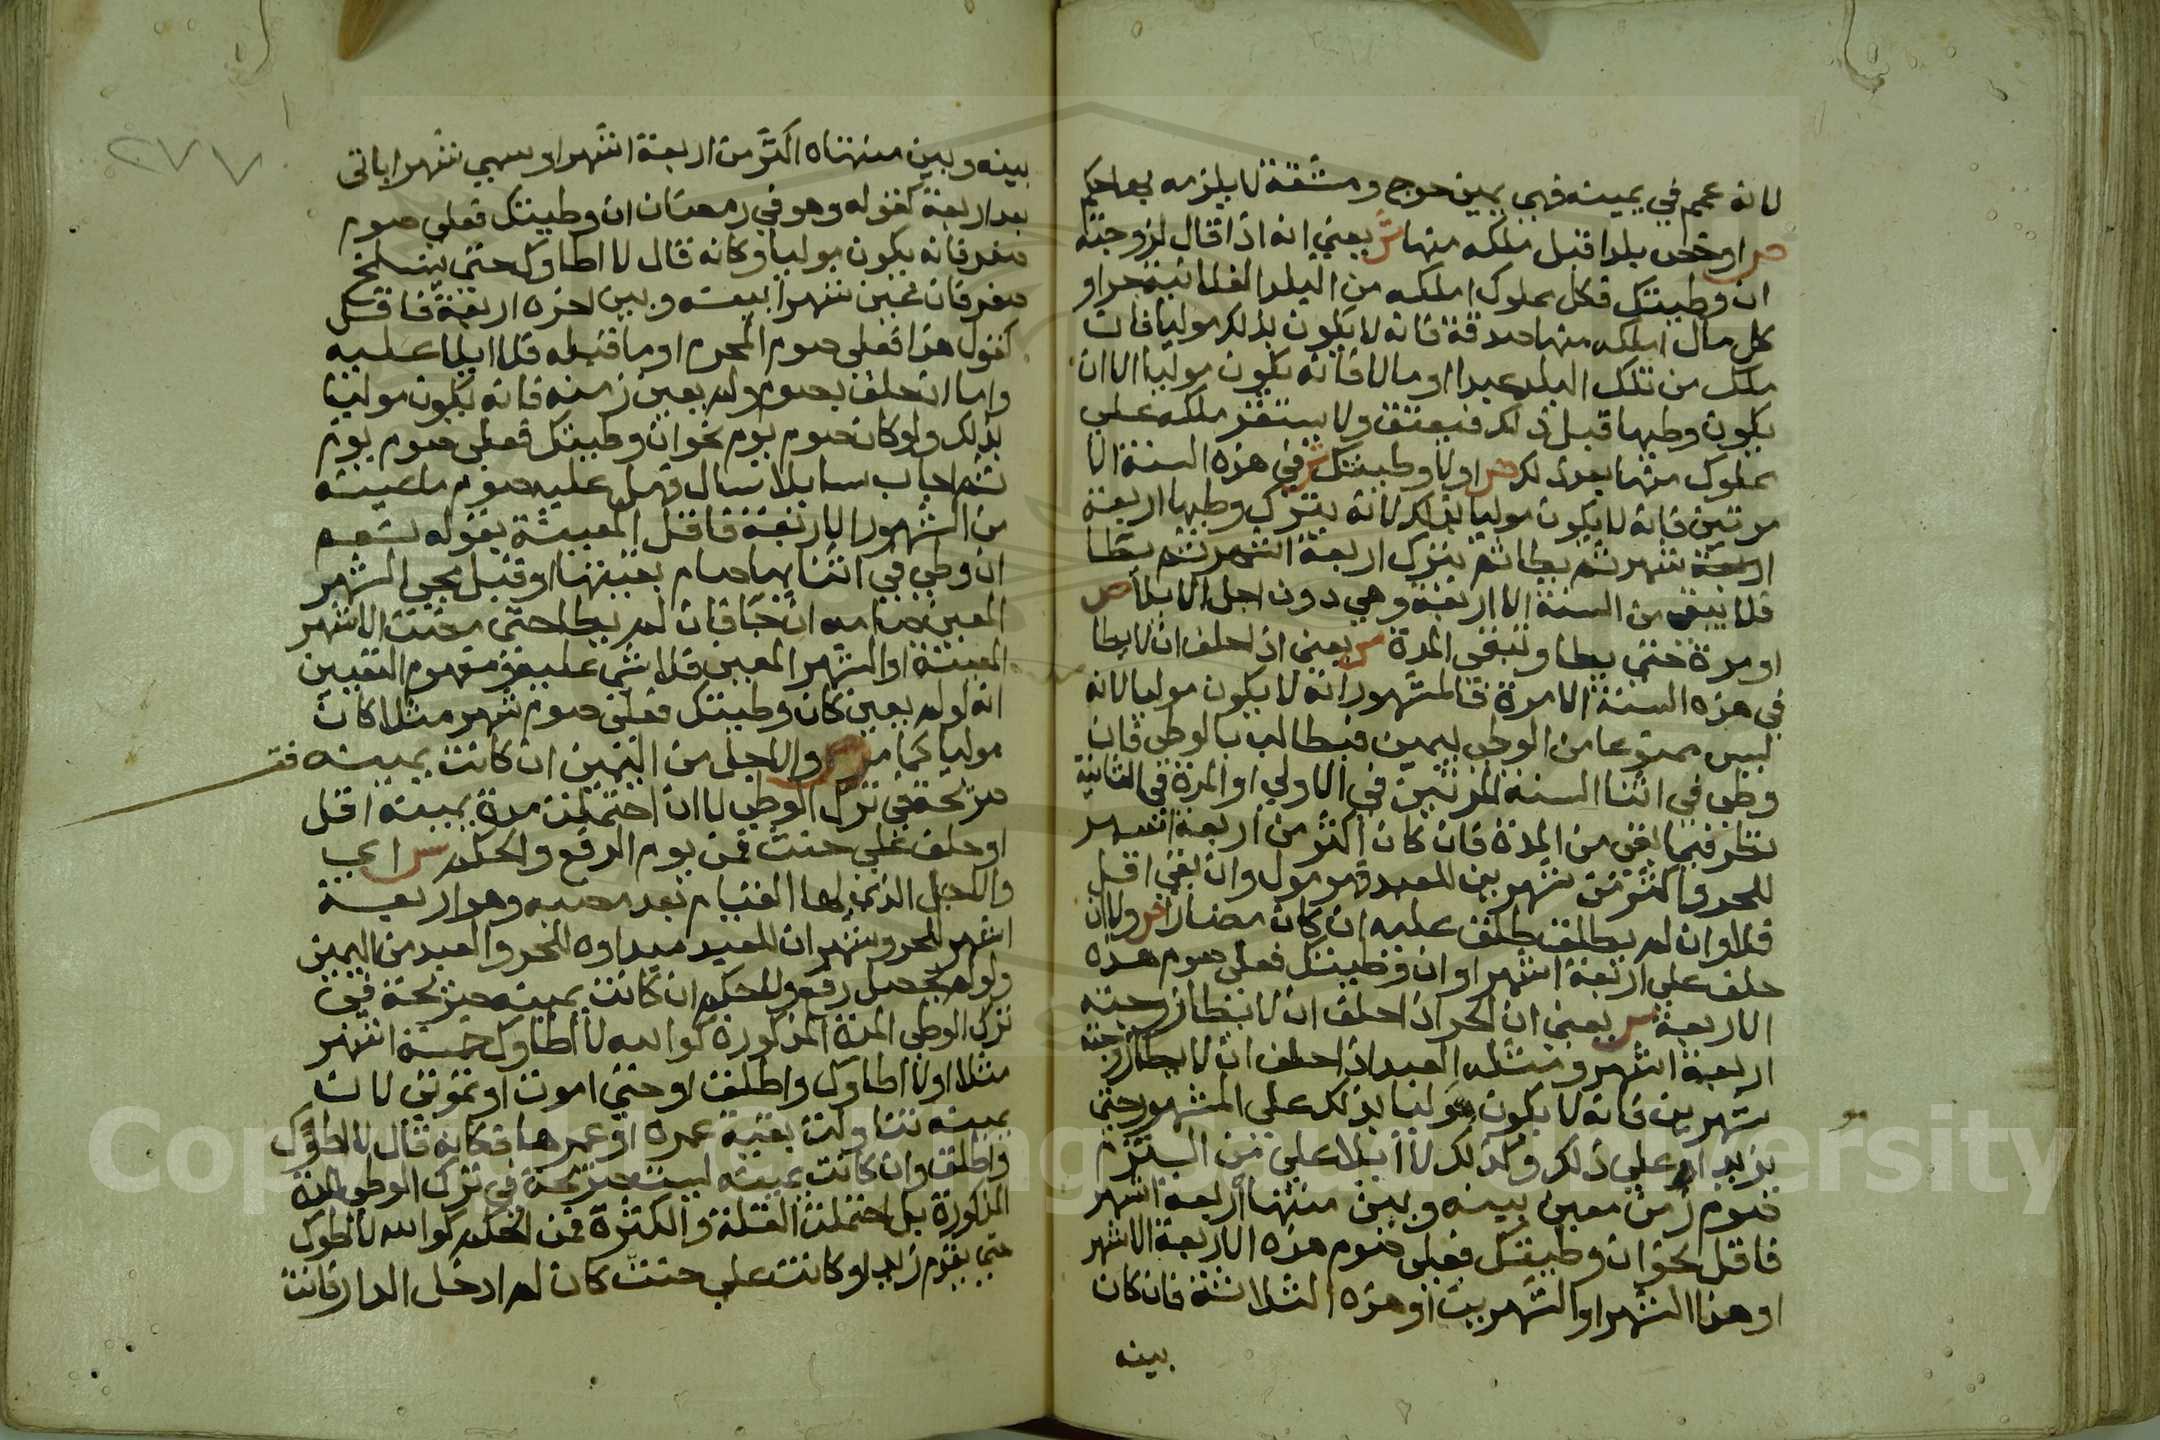 لانه عمم في يمينه فهي يمين حرج ومشقة لا يلزمه بها حكم
ص او خص بلدا قبل ملكه منها ش يعني انه اذا قال لزوجته
ان وطيتك فكل مملوك املكه من البلد الفلانية حر او
كل مال املكه منها صدقة فانه لا يكون بذلك موليا فان
ملك من تلك البلد عبدا او مالا فانه يكون موليا الا ان
يكون وطيها قبل ذلك فيعتق ولا يستقر ملكه على
مملوك منها بعد ذلك ص او لا وطيتك ش في هذه السنة الا
مرتين فانه لا يكون موليا بذلك لانه يترك وطيها اربعة
اربعة شهر ثم يطا ثم يترك اربعة اشهر ثم يطا
فلا يبقى من السنة الا اربعة وهي دون اجل الايلا ص
او مرة حتى يطا وتبقى المدة ش يعني اذا حلف ان لا يطا
في هذه السنة الا مرة فالمشهور انه لا يكون موليا لانه
ليس ممنوعا من الوطي بيمين فيطالب بالوطي فان
وطي في اثنا السنة المرتين في الاولى او المرة في الثانية
نظر فيما بقى من المدة فان كان اكثر من اربعة اشهر
للحر واكثر من شهرين للعبد فهو مول وان بقي اقل
فلا وان لم يطا طلق عليه ان كان مضارا ص ولا ان
حلف على اربعة اشهر او ان وطيتك فعلي صوم هذه
الاربعة ش يعني ان الحر اذا حلف ان لا يطا زوجته
اربعة اشهر ومثله العبد اذا حلف ان لا يطا زوجته
شهرين فانه لا يكون موليا بذلك على المشهور حتى
يزيد على ذلك وكذلك لا ايلا على من التزم
صوم زمن معين بينه وبين منتهاه اربعة اشهر
فاقل نحو ان وطيتك فعلي صوم هذه الاربعة الاشهر
او هذا الشهر او الشهرين او هذه الثلاثة فان كان
بينه
مو
٢٧٧
بينه وبين منتهاه اكثر من اربعة اشهر او سمي شهرا ياتي
بعد اربعة كقوله وهو في رمضان ان وطيتك فعلي صوم
صفر فانه يكون موليا وكانه قال لا اطاوك حتى ينسلخ
صفر فان عين شهرا بينه وبين اخره اربعة فاقل
كقول هذا فعلي صوم المحرم او ما قبله فلا ايلا عليه
واما ان حلف بصوم ولم يعين زمنه فانه يكون موليا
بذلك ولو كان صوم يوم نحو ان وطيتك فعلي صوم يوم
ثم اجاب سايلا سال فهل عليه صوم ما عينه
من الشهور الاربعة فاقل المعينة بقوله نعم
ان وطي في اثنايها صام بقيتها او قبل مجي الشهر
المعين صامه ان جا فان لم يطا حتى مضت الاشهر
المعينة او الشهر المعين فلا شي عليه ومفهوم التعيين
انه لو لم يعين كان وطيتك فعلي صوم شهر مثلا كان
موليا كما مر ص والاجل من اليمين ان كانت يمينه
صريحة في ترك الوطي لا ان احتملت مدة يمينه اقل
او حلف على حنث فمن يوم الرفع والحكم ش اي
والاجل الذي لها القيام بعد مضيه وهو اربعة
اشهر للحر وشهران للعبد مبداوه للحر والعبد من اليمين
ولو لم يحصل رفع وللحكم ان كانت يمينه صريحة في
ترك الوطي المدة المذكورة كوالله لا اطاوك خمسة اشهر
مثلا او لا اطاوك واطلق او حتى اموت او تموتي لان
يمينه تناولت بقية عمره او عمرها فكانه قال لا اطاوك
واطلق وان كانت يمينه ليست صريحة في ترك الوطي المدة
المذكورة بل احتملت القلة والكثرة فمن الحكم كوالله لا اطوك
حتى يقدم زيد او كانت على حنث كان لم ادخل الدار فانت